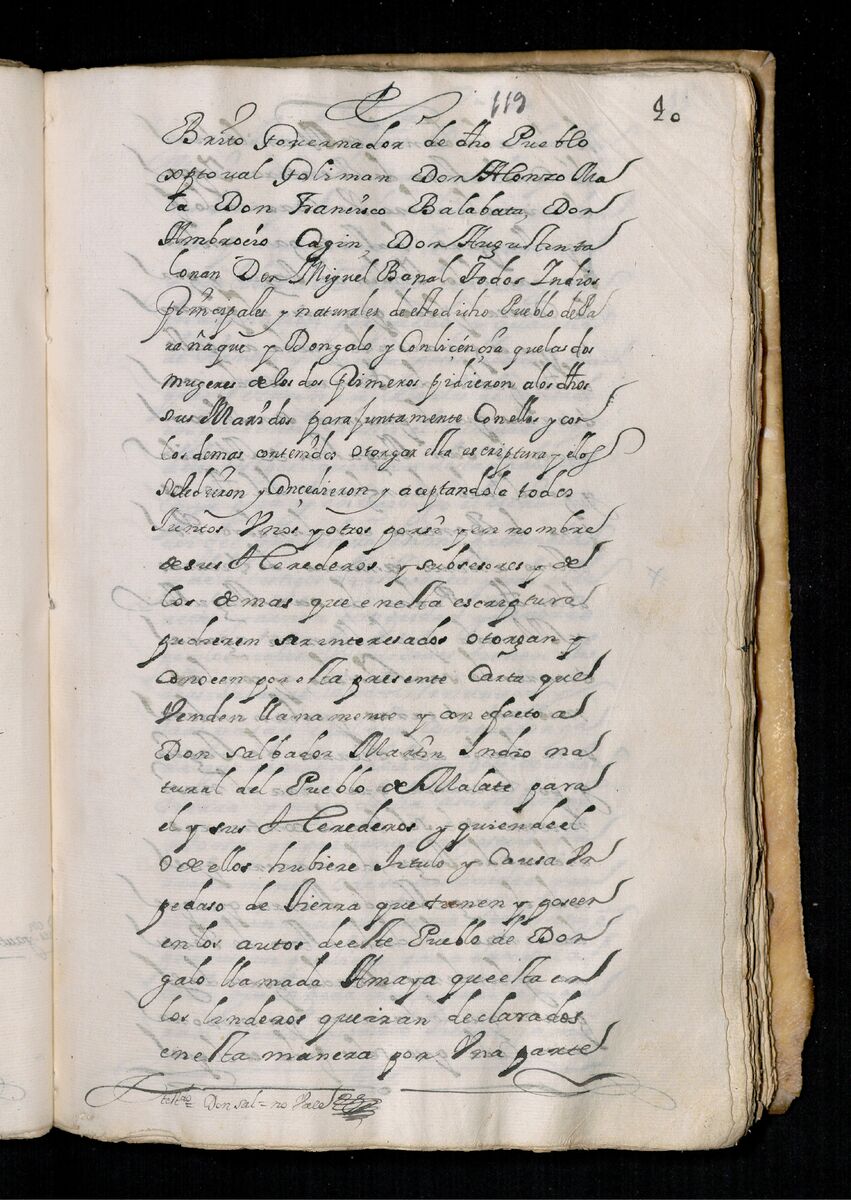 119
40
Brito Governador de dho Pueblo
xptoval Goliman Don Alonzo Ma
ta Don Francisco Balabata, Don
Ambrocio Cagin, Don Augustin ta
lonan Don Miguel Banal Todos Indios
Principales y naturales de este dicho Pueblo de Pa
rañaque y Dongalo y Con licençia que las dos
mugeres de los dos Primeros pidieron a los dhos
sus Maridos para juntamente Con ellos y con
los demas contenidos otorgar esta escriptura y ellos
se la dieron y Concedieron y aceptandola todos
Juntos Unos y otros por si y en nombre
de sus Herederos y subsesores y de
los demas que en esta escriptura
pudieren ser interesados otorgan y
conocen por esta presente Carta que
Venden llanamente y con efecto a
Don Salbador Martin Indio na
tural del Pueblo de Malate para
el y sus Herederos y quien de el
O de ellos hubiere titulo y Causa Un
pedaso de tierra que tienen y poseen
en los autos de este Pueblo de Don
galo llamada Amaya que esta en
los linderos que iran declarados
en esta manera por Una parte
Don sal = no Vale